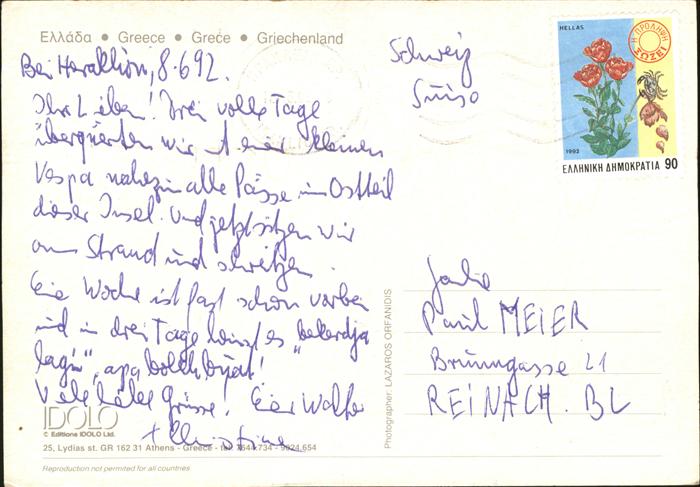 Ελλάδα • Greece • Grèce • Griechenland
Bei Heraklion, 8.6 92.
Ihr Lieben! Drei volle Tage
überquerten wir mit einer kleinen
Vespa nahezu alle Pässe im Ostteil
dieser Insel. Und jetzt sitzen wir
am Strand und schwitzen.
Eine Woche ist fast schon vorbei
und in drei Tage heisst es "bekerdja
lagi",
Viele liebe Grüsse! Euer Walter
+ Christine
IDOLO
© Editions IDOLO Ltd.
25, Lydias st. GR 162 31 Athens - Greece - tel. 7644.734 - 9024.654
Reproduction not permited for all countries
Photographer: LAZAROS ORFANIDIS
Schweiz
Suiso
HELLAS
Η ΠΡΟΛΗΨΗ
ΣΩΖΕΙ
1992
ΕΛΛΗΝΙΚΗ ΔΗΜΟΚΡΑΤΙΑ 90
Paul MEIER
Brunngasse 21
REINACH. BL